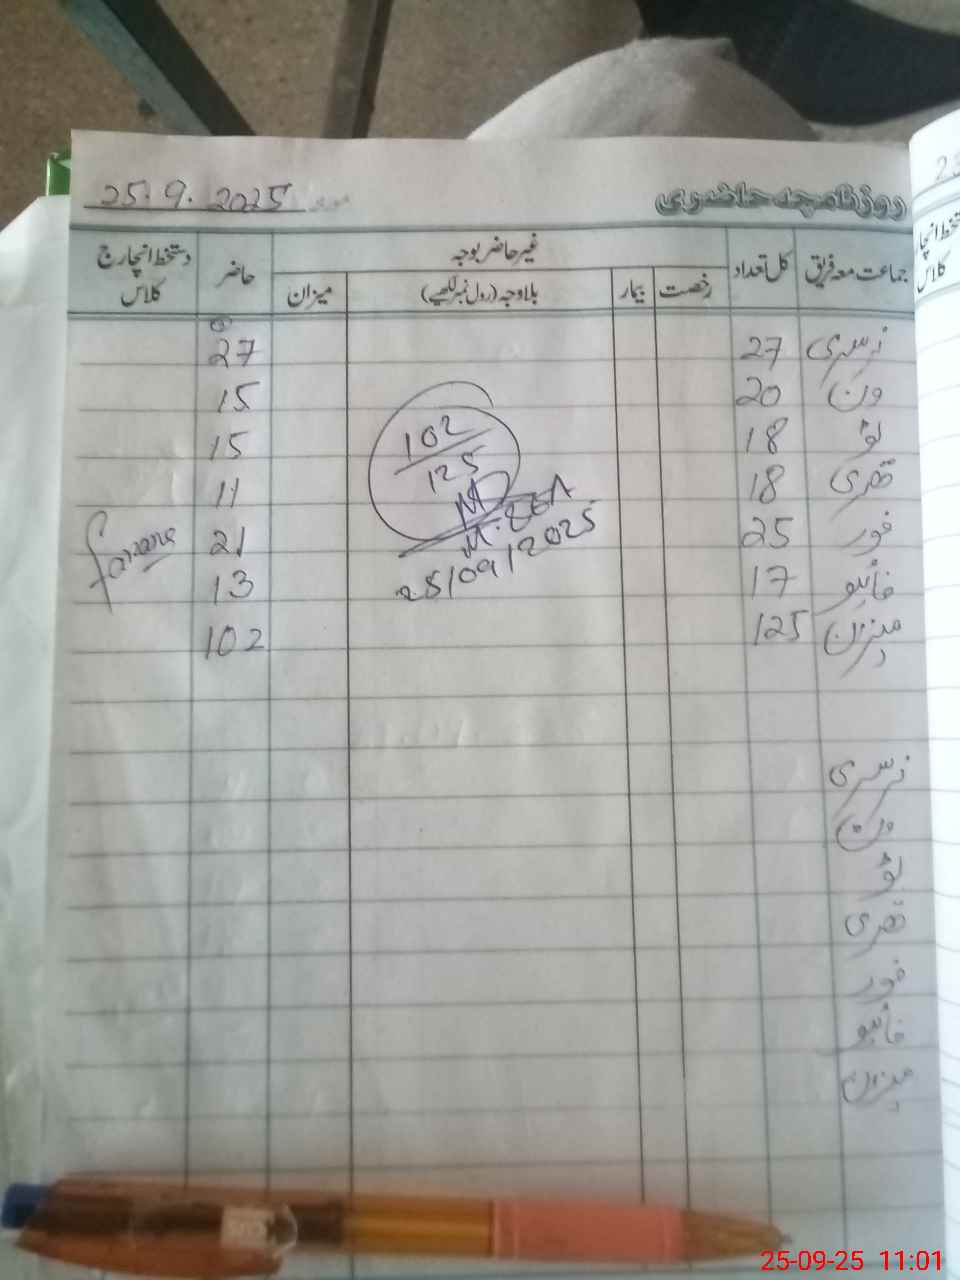 روزنامچہ حاضری مورخہ 25.9.2025
جماعت معہ فریق کل تعداد غیر حاضر بوجہ حاضر دستخط انچارج کلاس
رخصت بیمار بلاوجہ (رول نمبر لکھیے) میزان
نرسری 27 27
ون 20 15
ٹو 18 15
تھری 18 11
فور 25 21
فائیو 17 13
میزان 125 102
Farzana
102
125
25/09/2025
نرسری
ون
ٹو
تھری
فور
فائیو
میزان
23
دستخط انچا
کلاس
25-09-25 11:01